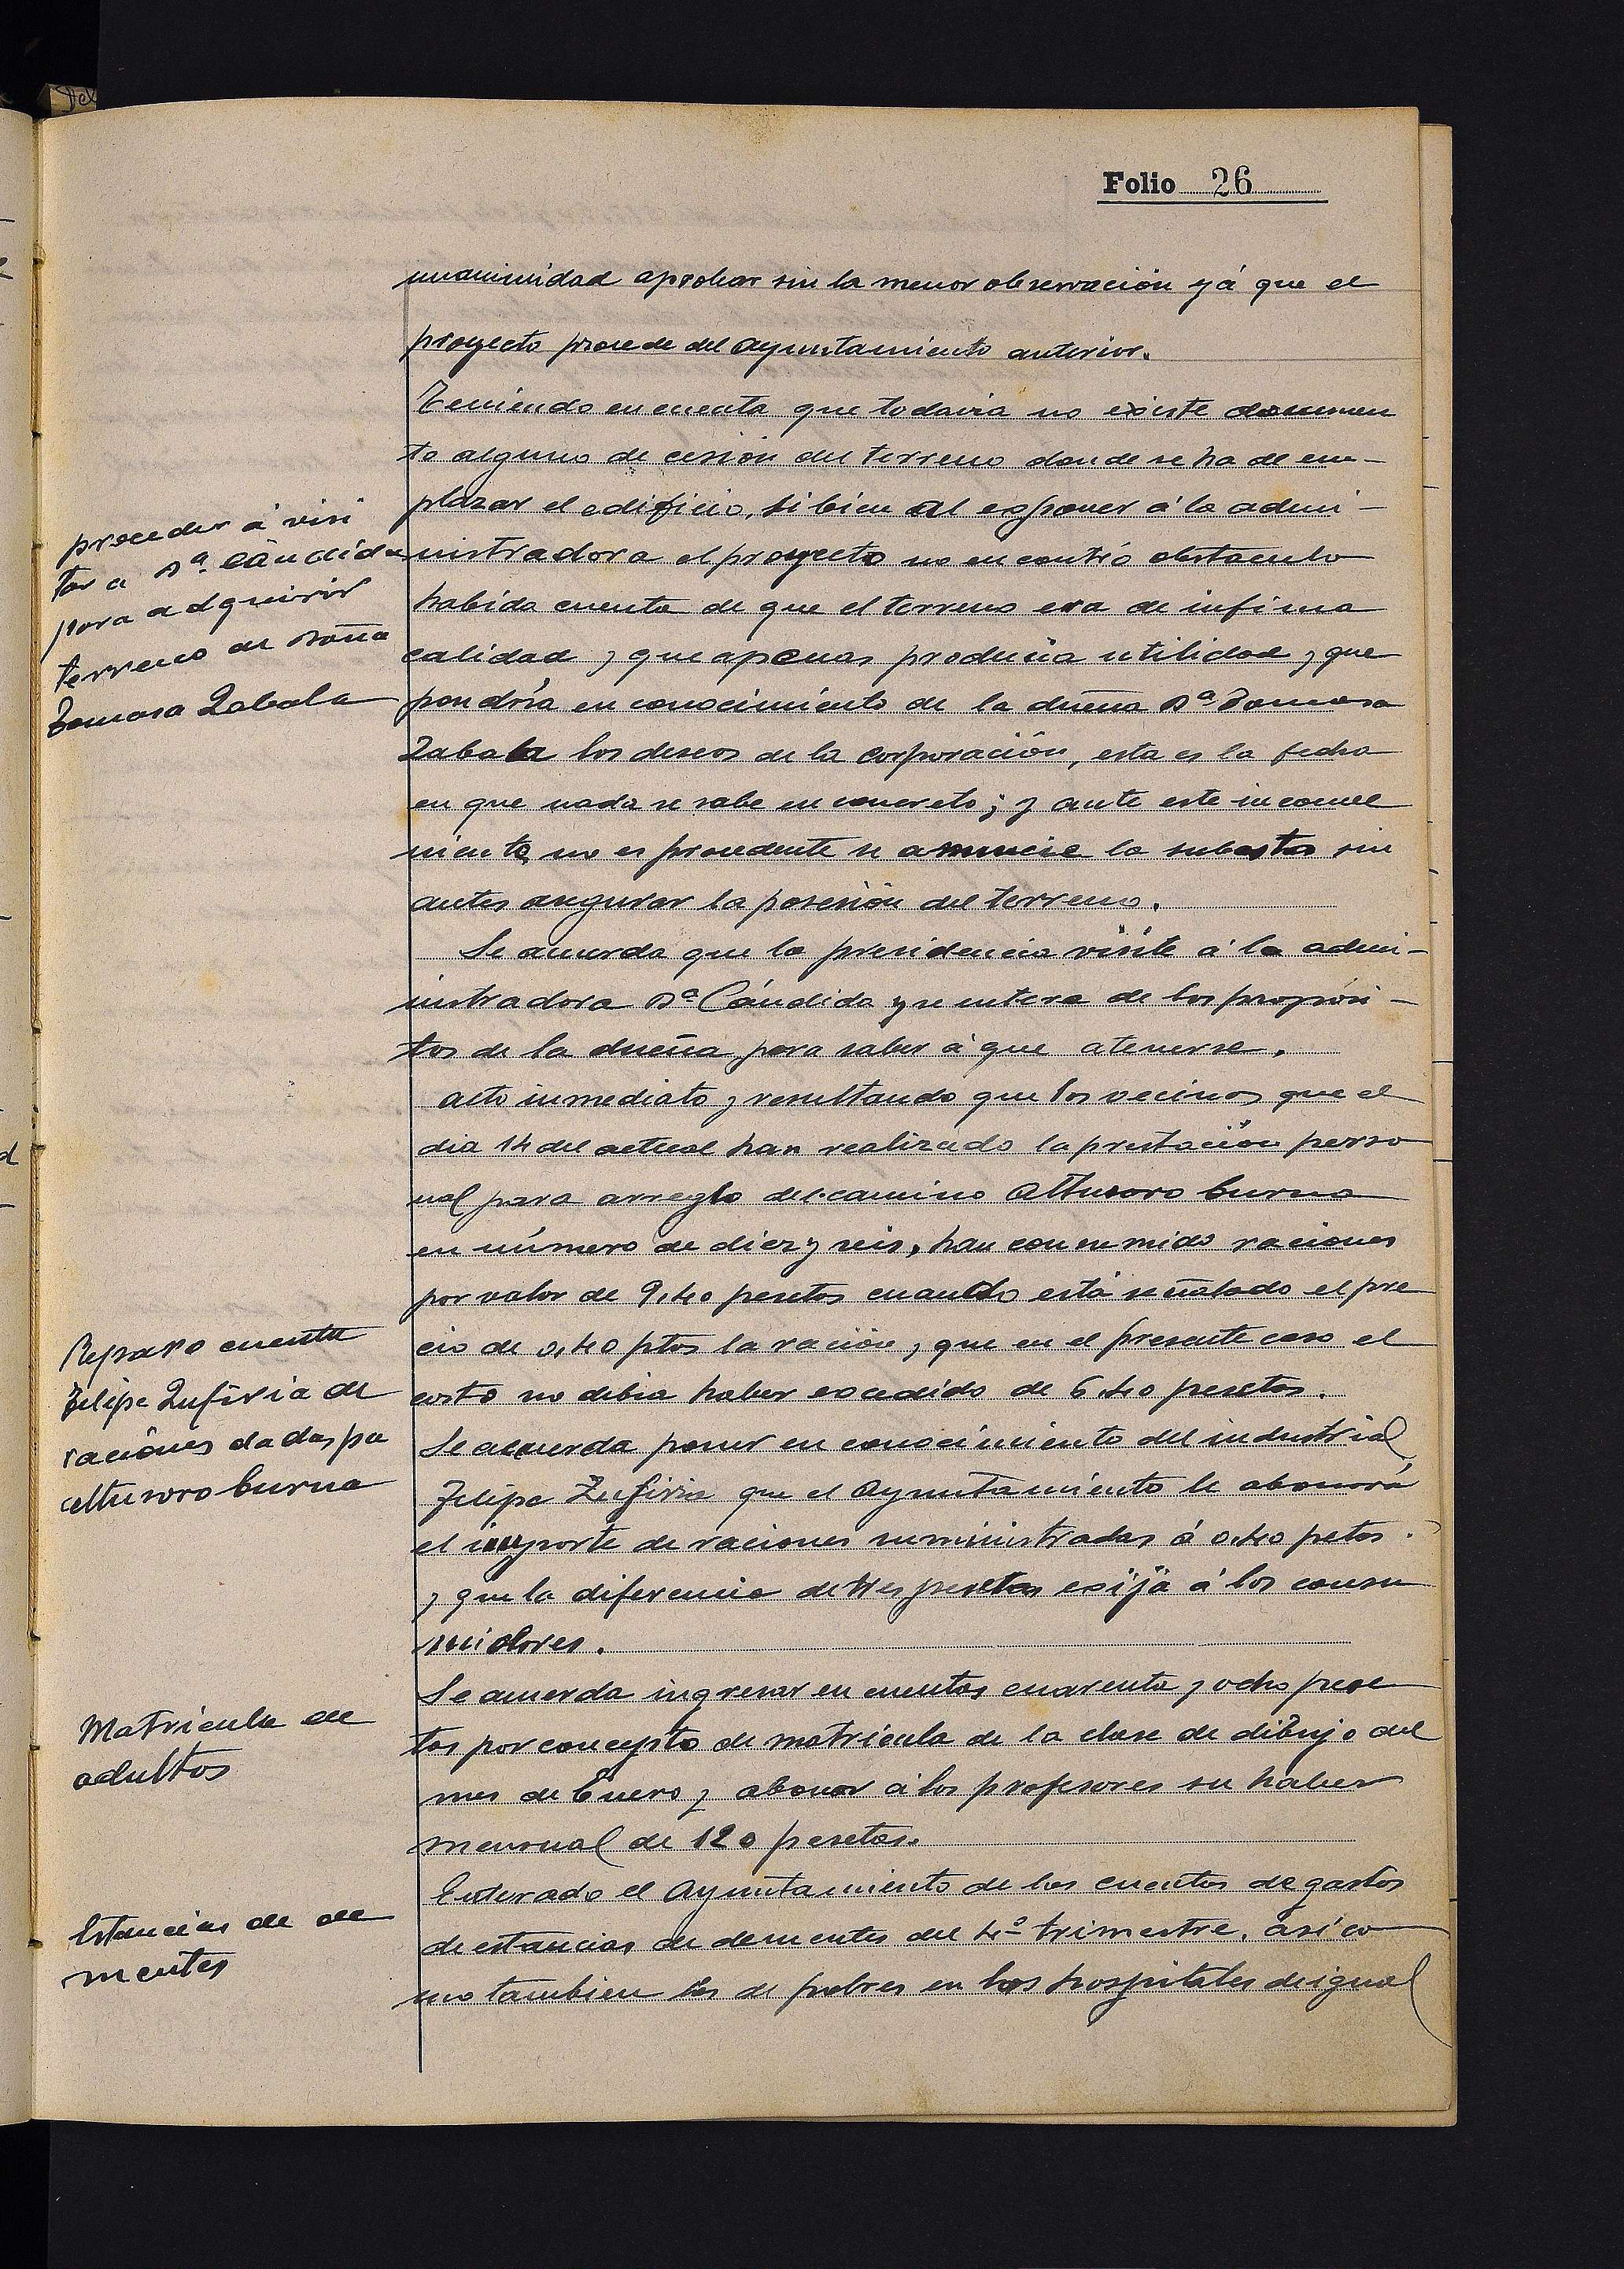 Folio 26
unanimidad aprobar sin la menor observación yá que el
proyecto procede del Ayuntamiento anterior.
Teniendo en cuenta que todavia no existe documen
to alguno de cesión del terreno donde se ha de em-
plazar el edificio, si bien al exponer á la admi-
nistradora el proyecto no encontró obstaculo
habida cuenta de que el terreno era de infima
calidad y que apenas producia utilidad y que
pondría en conocimiento de la dueña Dª Tomasa
Zabala los deseos de la Corporación, esta es la fecha
en que nada se sabe en concreto; y ante este inconve
niente no es procedente se anuncie la subasta sin
antes asegurar la posesión del terreno.
procedur á visi
tar a Dª Cándida
para adquirir
terreno de Doña
Tomasa Zabala
Se acuerda que la presidencia visite á la admi-
nistradora Dª Cándida y se entere de los propósi-
tos de la dueña para saber á que atenerse.
Acto inmediato y resultando que los vecinos que el
dia 14 del actual han realizado la prestación perso
nal para arreglo del camino Altusoro burua
en número de diez y seis, han consumido raciones
por valor de 9,40 pesetas cuando está señalado el pre
cio de 0,40 ptas la ración, que en el presente caso el
costo no debia haber excedido de 6,40 pesetas.
Reparo cuenta
Felipe Zufiria de
raciones dadas pa
Altusoro burua
Se acuerda poner en conocimiento del industrial
Felipe Zufiria que el Ayuntamiento le abonará
el importe de raciones suministradas á 0,40 petas.
y que la diferencia de tres pesetas exija á los consu
midores.
Matricula de
adultos
Se acuerda ingresar en cuentas cuarenta y ocho pese
tas por concepto de matrícula de la clase de dibujo del
mes de Enero y abonar á los profesores su haber
mensual de 120 pesetas.
Estancias de de
mentes
Enterado el Ayuntamiento de las cuentas de gastos
de estancias de dementes del 4º trimestre, así co
mo tambien las de pobres en los hospitales de igual